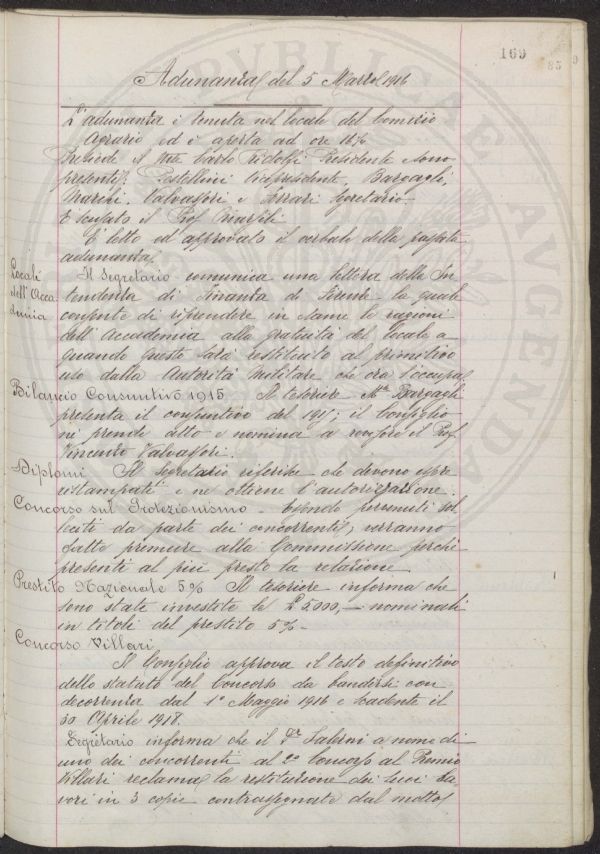 169
85
Adunanza del 5 Marzo 1916
L'adunanza è tenuta nel locale del Comizio
Agrario ed è aperta ad ore 16½
Presiede il Mse Carlo Ridolfi Presidente e sono
presenti: Pestellini Vicepresidente, Bargagli,
Marchi, Valvassori e Ferrari Segretario
È scusato il Prof.
È letto ed approvato il verbale della passata
adunanza.
Locali dell'Accademia
Il Segretario comunica una lettera della In
tendenza di Finanza di Firenze la quale
consente di riprendere in esame le ragioni
dell'Accademia alla gratuità del locale a
quando questo sarà restituito al primitivo
uso dalla Autorità Militare che ora l'occupa
Bilancio Consuntivo 1915 Il tesoriere Mse Bargagli
presenta il consuntivo del 1915; il Consiglio
ne prende atto e nomina a revisore il Prof.
Vincenzo Valvassori.
Diplomi Il Segretario riferisce che devono essere
ristampati e ne ottiene l'autorizzazione.
Concorso sul Protezionismo - Essendo pervenuti sol
leciti da parte dei concorrenti, verranno
fatte premure alla Commissione perchè
presenti al più presto la relazione
Prestito Nazionale 5% Il tesoriere informa che
sono state investite le £ 5000,— nominali
in titoli del prestito 5%-
Concorso Villari
Il Consiglio approva il testo definitivo
dello statuto del Concorso da bandirsi con
decorrenza dal 1° Maggio 1916 e scadente il
30 Aprile 1918.
Segretario informa che il Dr Salerni a nome di
uno dei concorrenti al 2° Concorso al Premio
Villari reclama la restituzione dei suoi la
vori in 3 copie contrassegnate dal motto
PVBLICAE
AVGENDAE